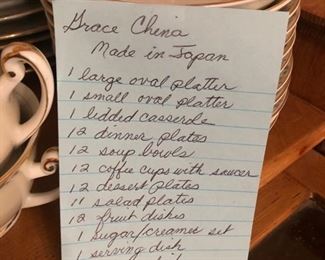 Grace China
Made in Japan
1 large oval platter
1 small oval platter
1 lidded casserole
12 dinner plates
12 soup bowls
12 coffee cups with saucer
12 dessert plates
11 salad plates
12 fruit dishes
1 sugar/creamer set
1 serving dish